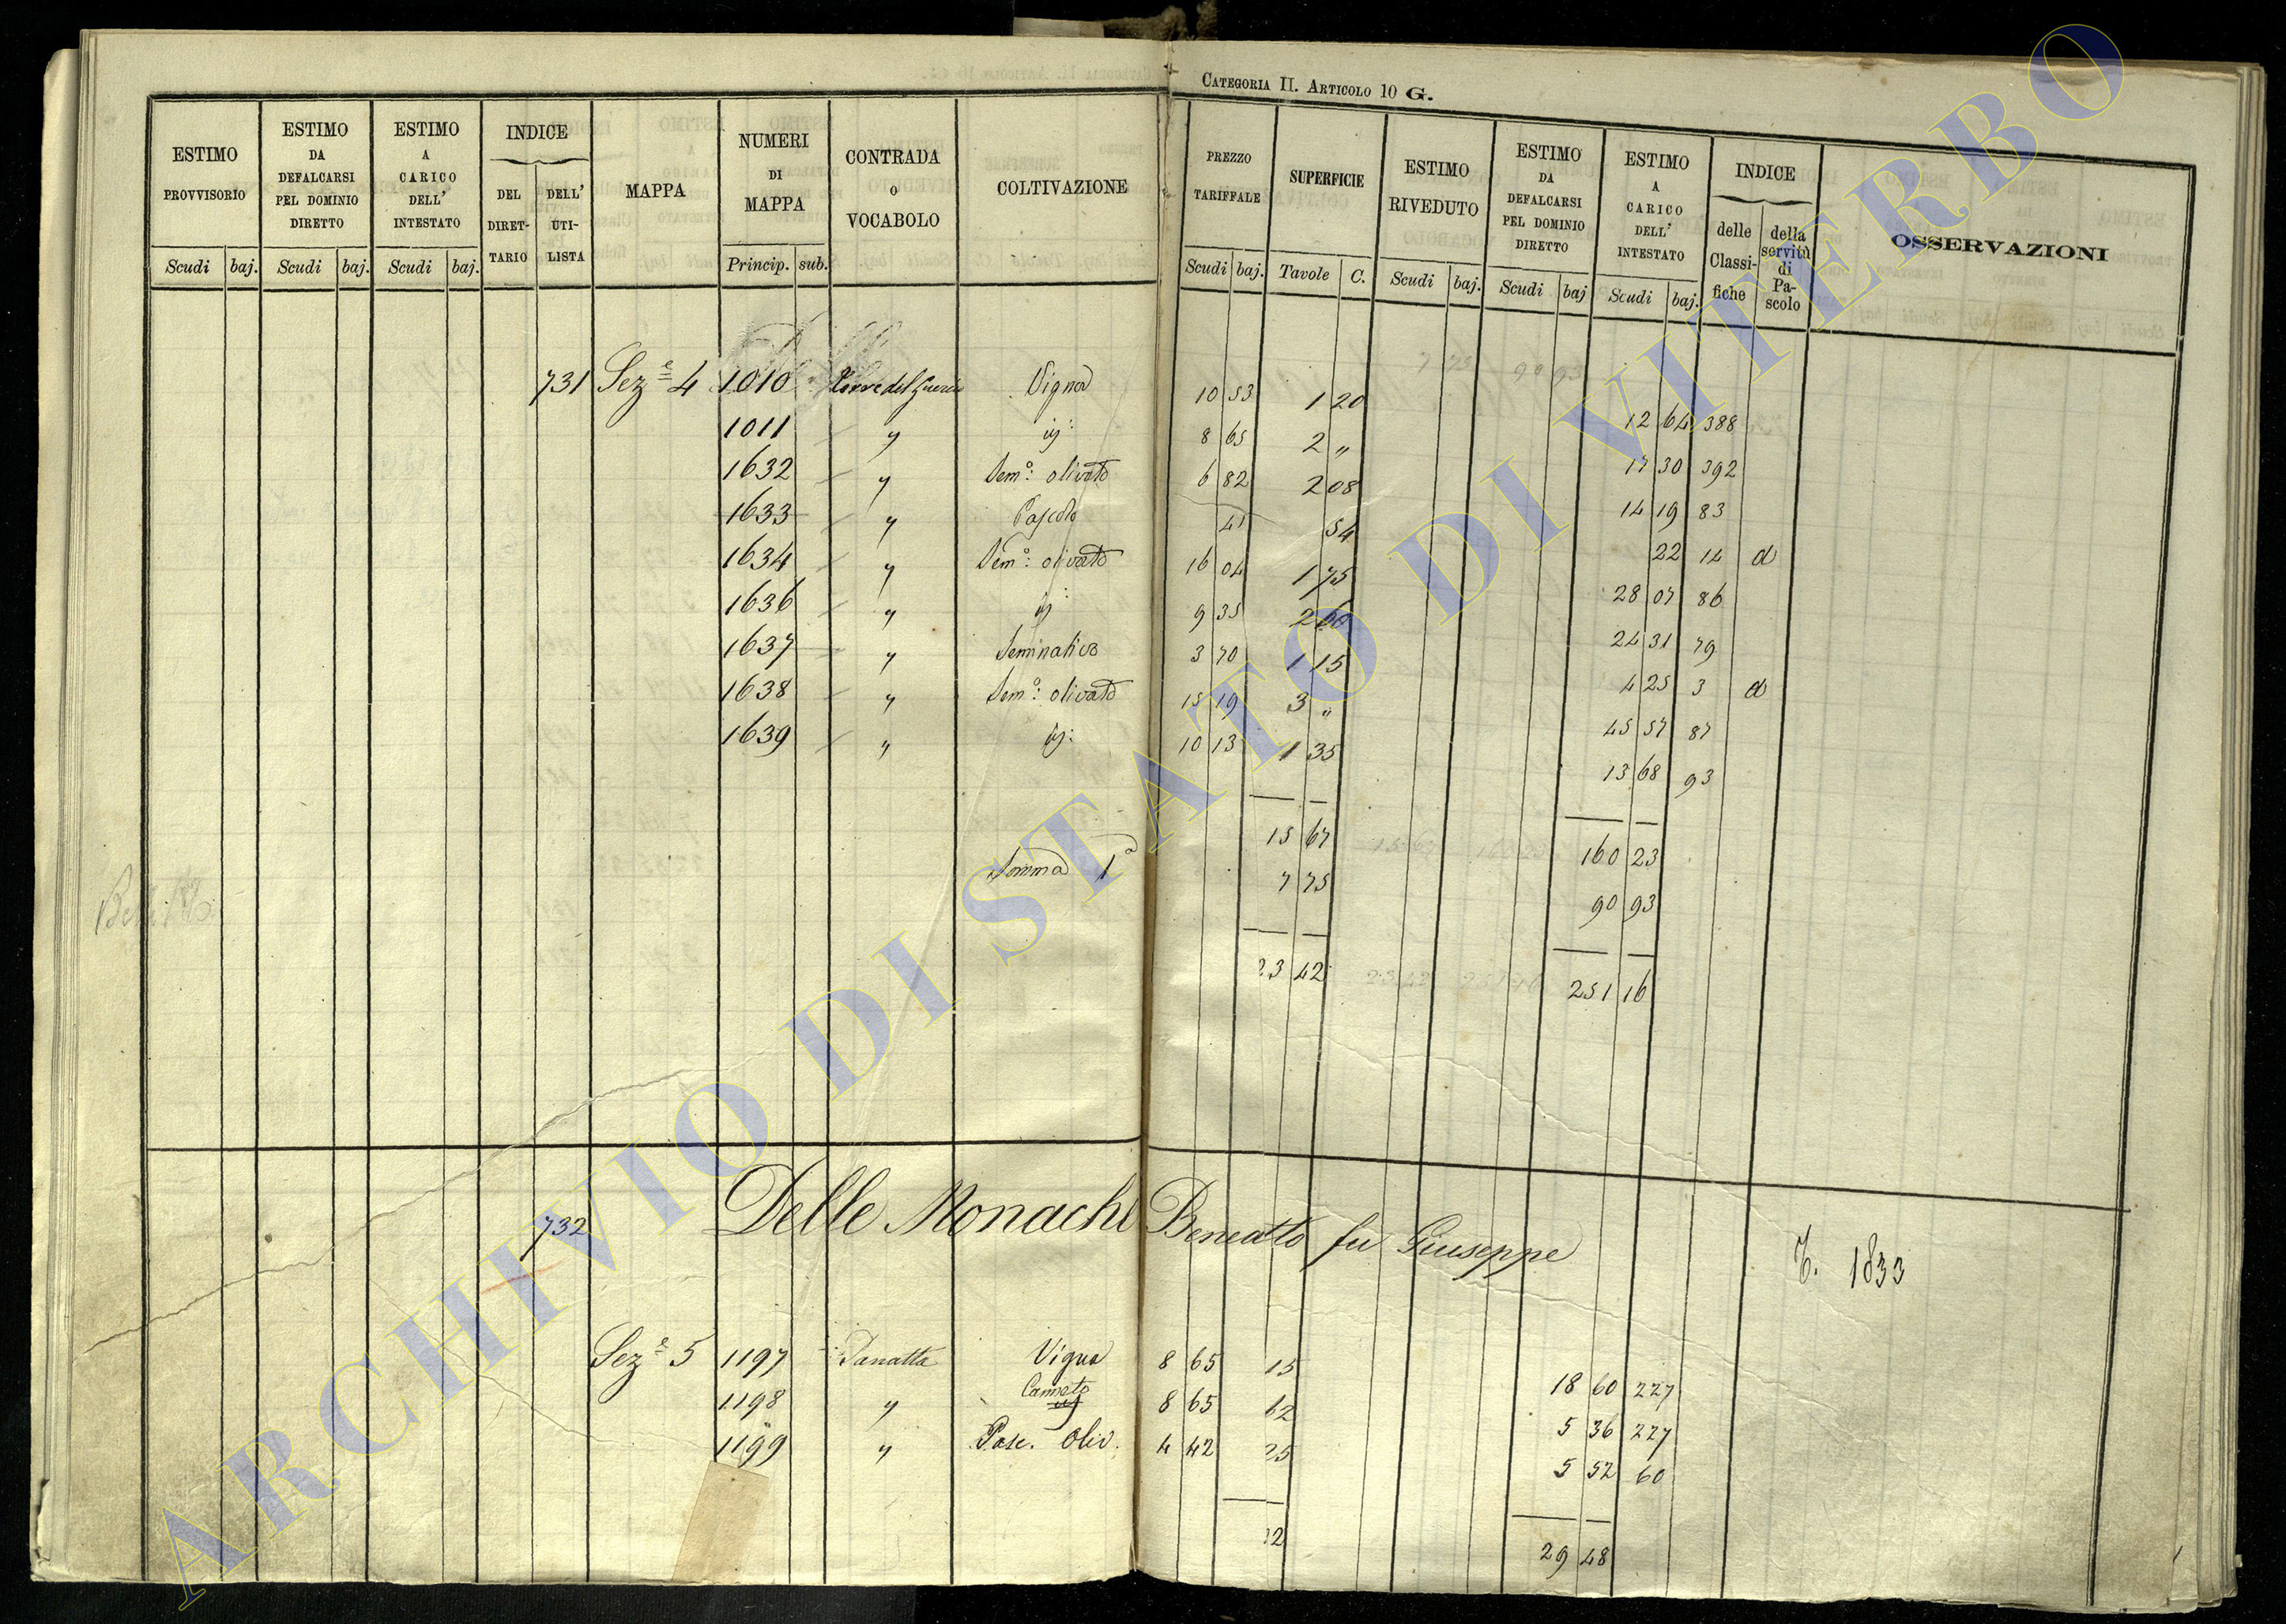 CATEGORIA II. ARTICOLO 10 G.
ESTIMO PROVVISORIO Scudi baj.
ESTIMO DA DEFALCARSI PEL DOMINIO DIRETTO Scudi baj.
ESTIMO A CARICO DELL' INTESTATO Scudi baj.
INDICE DEL DIRET-TARIO DELL' UTI-LISTA
MAPPA
NUMERI DI MAPPA Princip. sub.
CONTRADA O VOCABOLO
COLTIVAZIONE
PREZZO TARIFFALE Scudi baj.
SUPERFICIE Tavole C.
ESTIMO RIVEDUTO Scudi baj.
ESTIMO DA DEFALCARSI PEL DOMINIO DIRETTO Scudi baj
ESTIMO A CARICO DELL' INTESTATO Scudi baj.
INDICE delle Classi-fiche della servitù di Pa-scolo
OSSERVAZIONI
731 Sez.e 4 1010 Torre del Vigna 10 53 1 20 12 64 388
1011 " id: 8 65 2 " 17 30 392
1632 " Sem.o: olivato 6 82 2 08 14 19 83
1633 " Pascolo 41 54 22 14 d
1634 " Sem.o: olivato 16 04 1 75 28 07 86
1636 " id: 9 35 2 60 24 31 79
1637 " Seminativo 3 70 1 15 4 25 3 d
1638 " Sem.o: olivato 15 19 3 " 45 57 87
1639 " id: 10 13 1 35 13 68 93
15 67 160 23
Somma 1a 7 75 90 93
23 42 251 16
732 Delle Monache Benedetto fu Giuseppe T. 1833
Sez.e 5 1197 Panatta Vigna 8 65 15 18 60 227
1198 " Canneto id 8 65 62 5 36 227
1199 " Pasc. Oliv. 4 42 25 5 52 60
29 48
ARCHIVIO DI STATO DI VITERBO